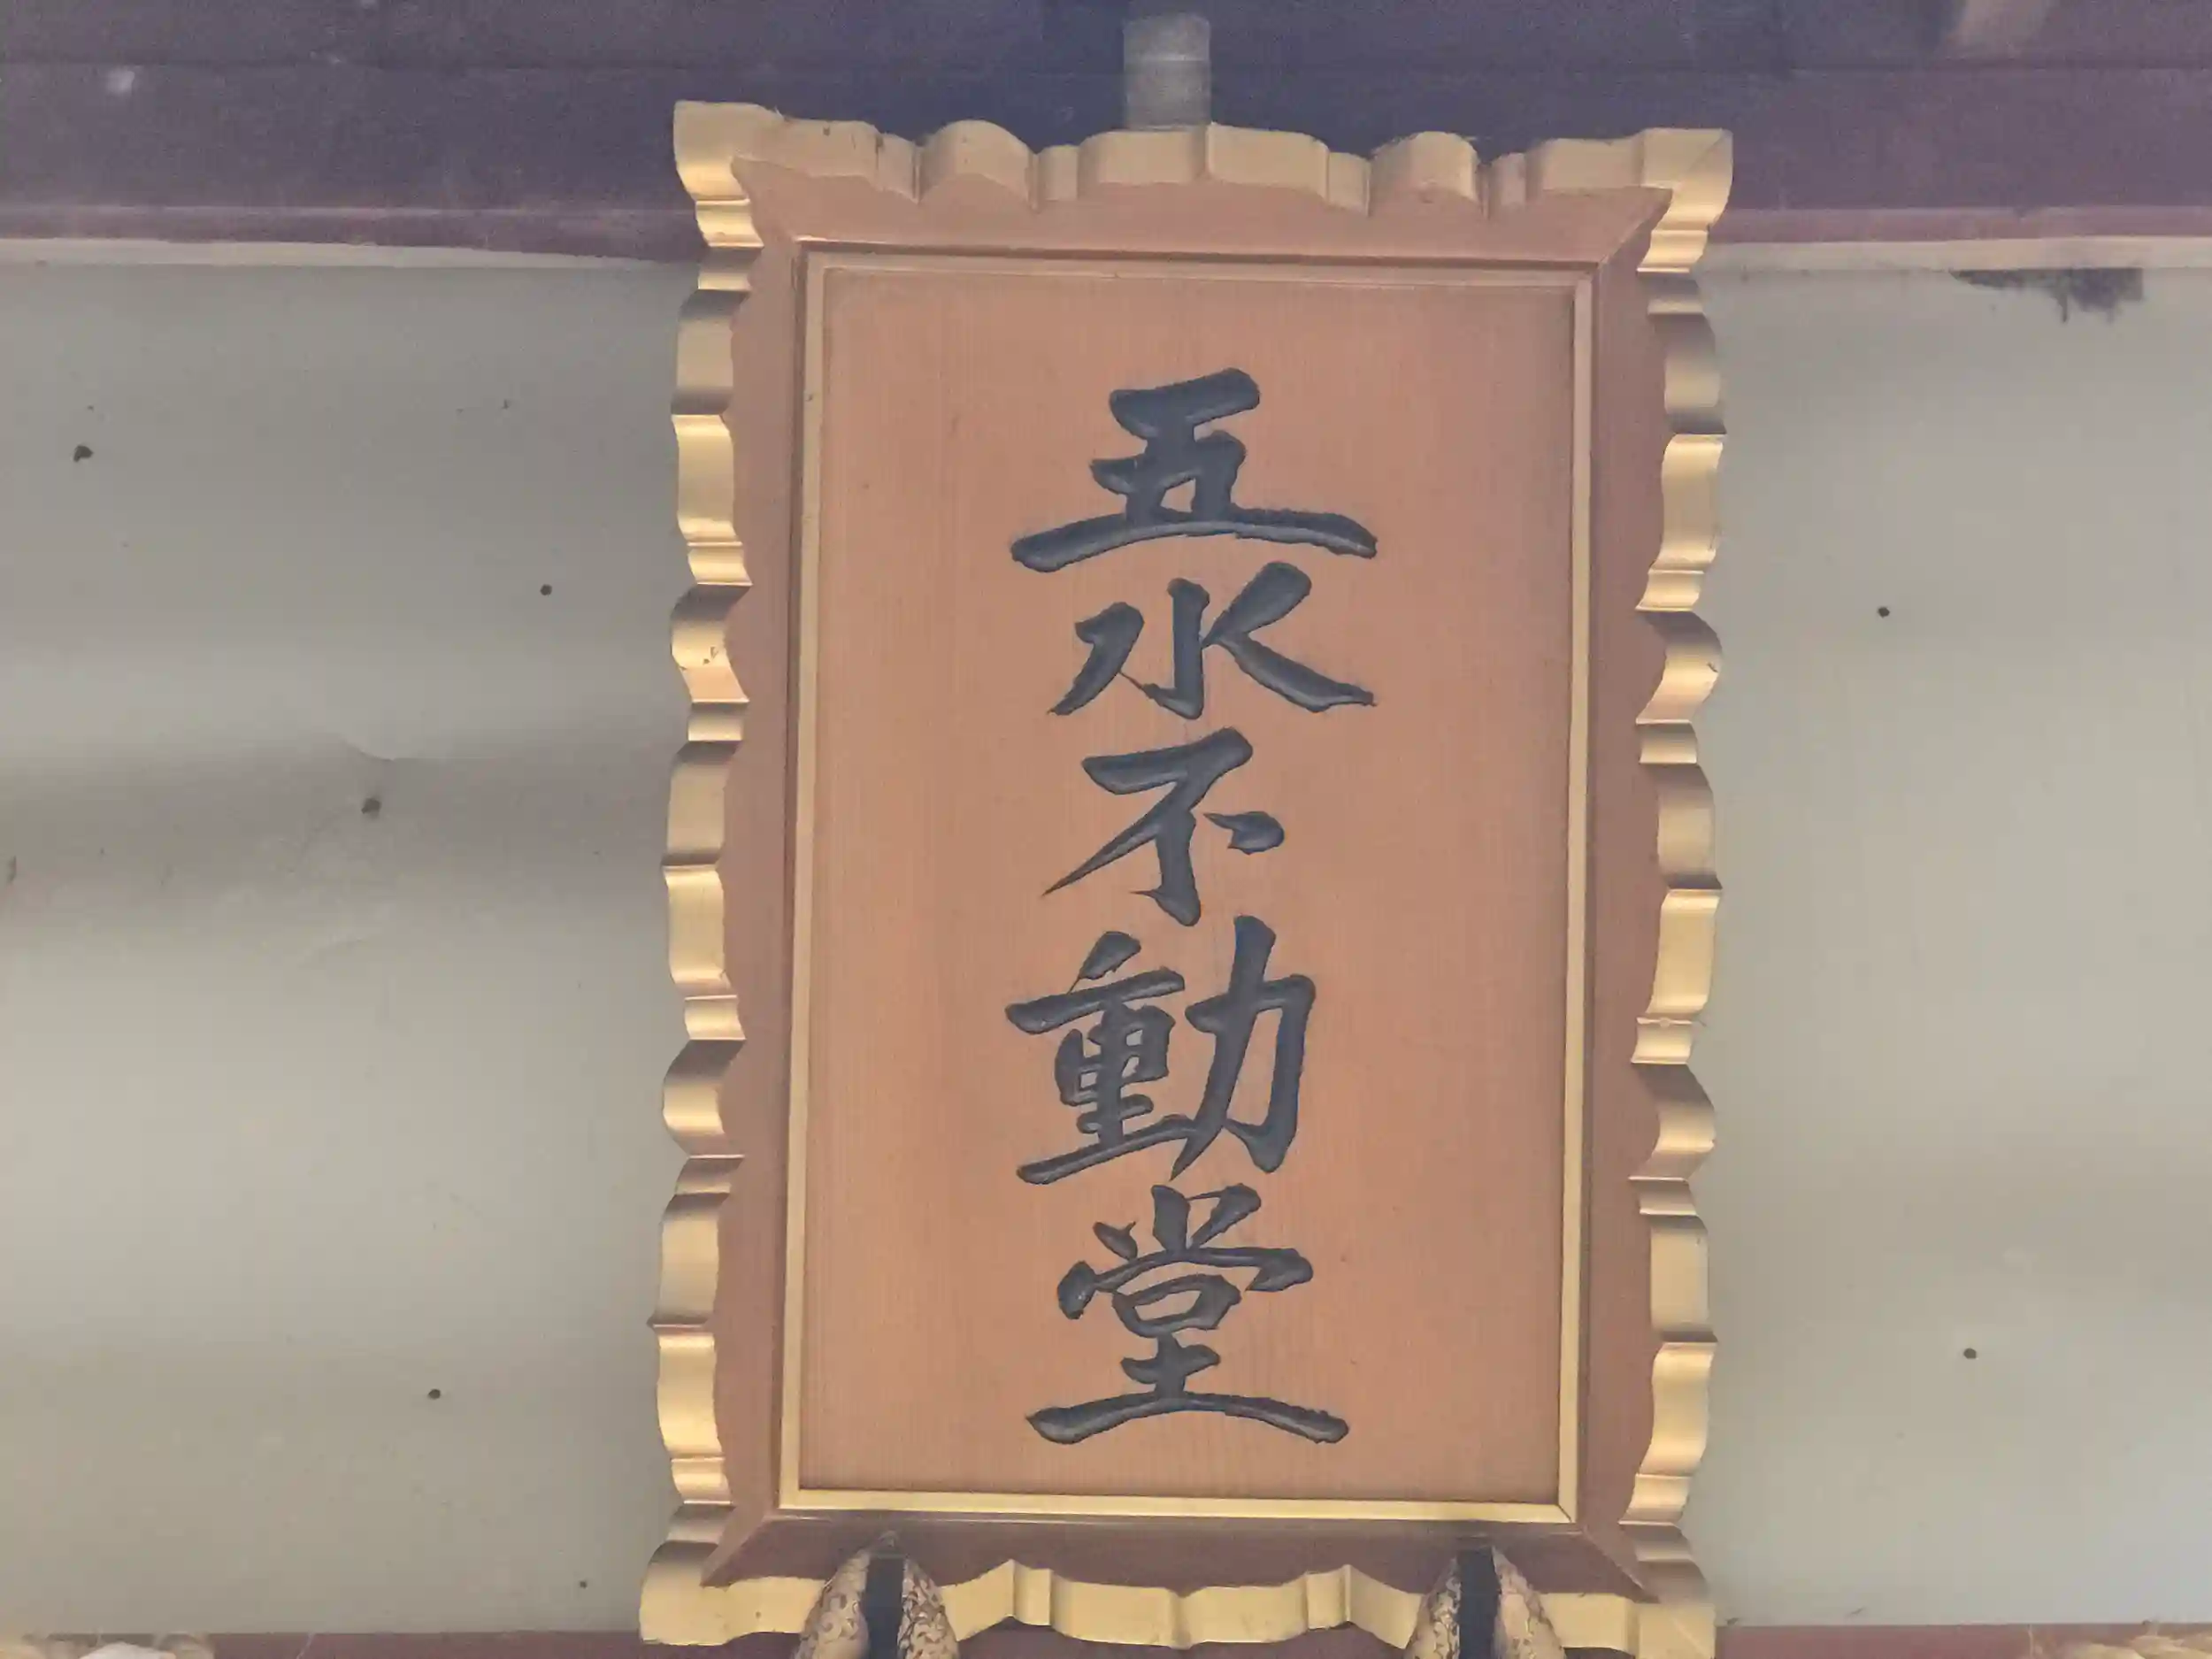 五水不動堂